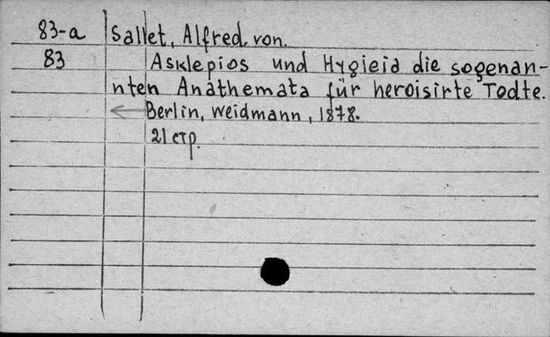 83-a Sallet, Alfred. von.
83 Asklepios und Hygieia die sogenan-
nten Anathemata für heroisirte Todte.
Berlin, Weidmann, 1878.
21 стр.